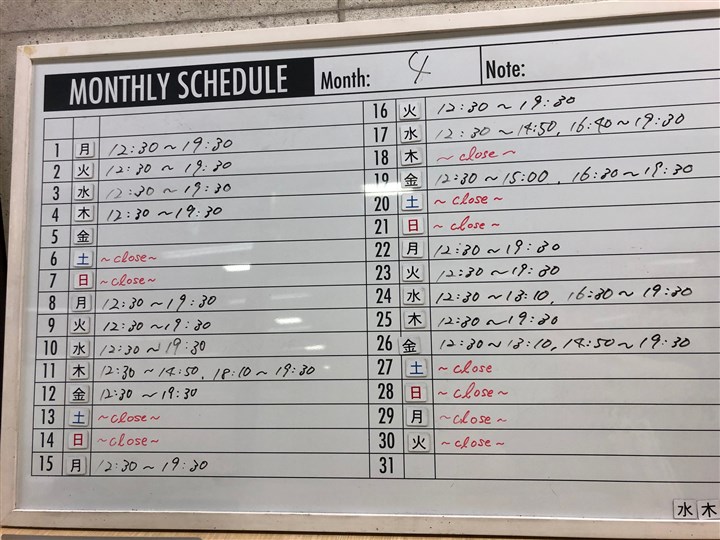 MONTHLY SCHEDULE Month: 4 Note:
1 月 12:30~19:30
2 火 12:30~19:30
3 水 12:30~19:30
4 木 12:30~19:30
5 金
6 土 ~close~
7 日 ~close~
8 月 12:30~19:30
9 火 12:30~19:30
10 水 12:30~19:30
11 木 12:30~14:50, 18:10~19:30
12 金 12:30~19:30
13 土 ~close~
14 日 ~close~
15 月 12:30~19:30
16 火 12:30~19:30
17 水 12:30~14:50, 16:40~19:30
18 木 ~close~
19 金 12:30~15:00, 16:30~19:30
20 土 ~close~
21 日 ~close~
22 月 12:30~19:30
23 火 12:30~19:30
24 水 12:30~13:10, 16:30~19:30
25 木 12:30~19:30
26 金 12:30~13:10, 14:50~19:30
27 土 ~close
28 日 ~close~
29 月 ~close~
30 火 ~close~
31
水 木